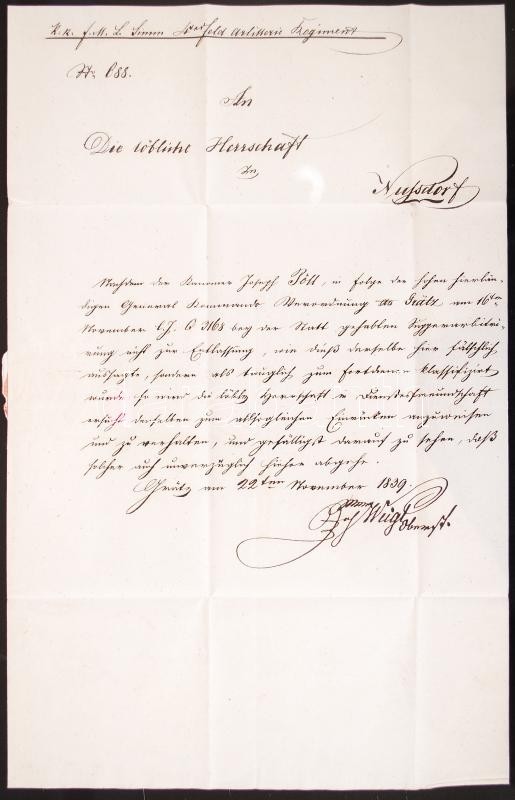 K. k. F. M. L. Simm 4tes Feld Artillerie Regiment
No 688.
An
Die löbliche Herrschaft
in
Nußdorf
Nachdem der Kanonier Joseph Pöll, in Folge der hohen hierlän-
digen General Kommando Verordnung Grätz am 16ten
November l. J. 3168 bey der Statt gehabten Superarbitri-
rung nicht zur Entlassung, wie dieß derselbe hier fälschlich
aussagte, sondern als tauglich zum Fortdienen klassifizirt
wurde. So wird die löbl. Herrschaft in Dienstesfreundschaft
ersucht denselben zum allsogleichen Einrücken anzuweisen
und zu verhalten, und gefälligst darauf zu sehen, daß
solcher auch unverzüglich hieher abgehe.
Grätz am 22ten November 1839.
Weigl Oberst.